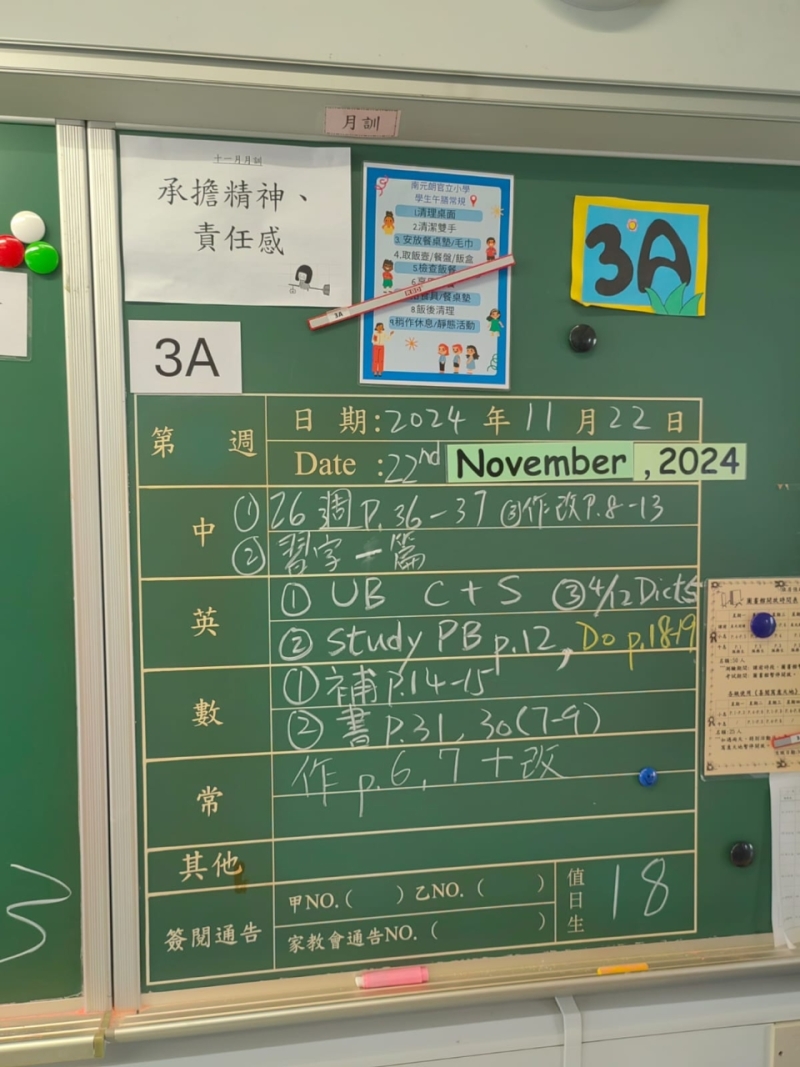 月訓
十一月月訓
承擔精神、
責任感
南元朗官立小學
學生午膳常規
1.清理桌面
2.清潔雙手
3.安放餐桌墊/毛巾
4.取飯壺/餐盤/飯盒
5.檢查飯餐
餐具/餐桌墊
8.飯後清理
9.稍作休息/靜態活動
3A
3A
3A
第 週
日 期:2024 年 11 月 22 日
Date :22nd November , 2024
中
① 26 週 P.36-37 ③作改P.8-13
② 習字一篇
英
① UB C+S ③ 4/12 Dict5
② study PB p.12, Do p.18-19
數
① 補P.14-15
② 書 P.31, 30(7-9)
常
作 p.6, 7 + 改
其他
簽閱通告
甲NO.( ) 乙NO.( )
家教會通告NO.( )
值日生
18
圖書館開放時間表